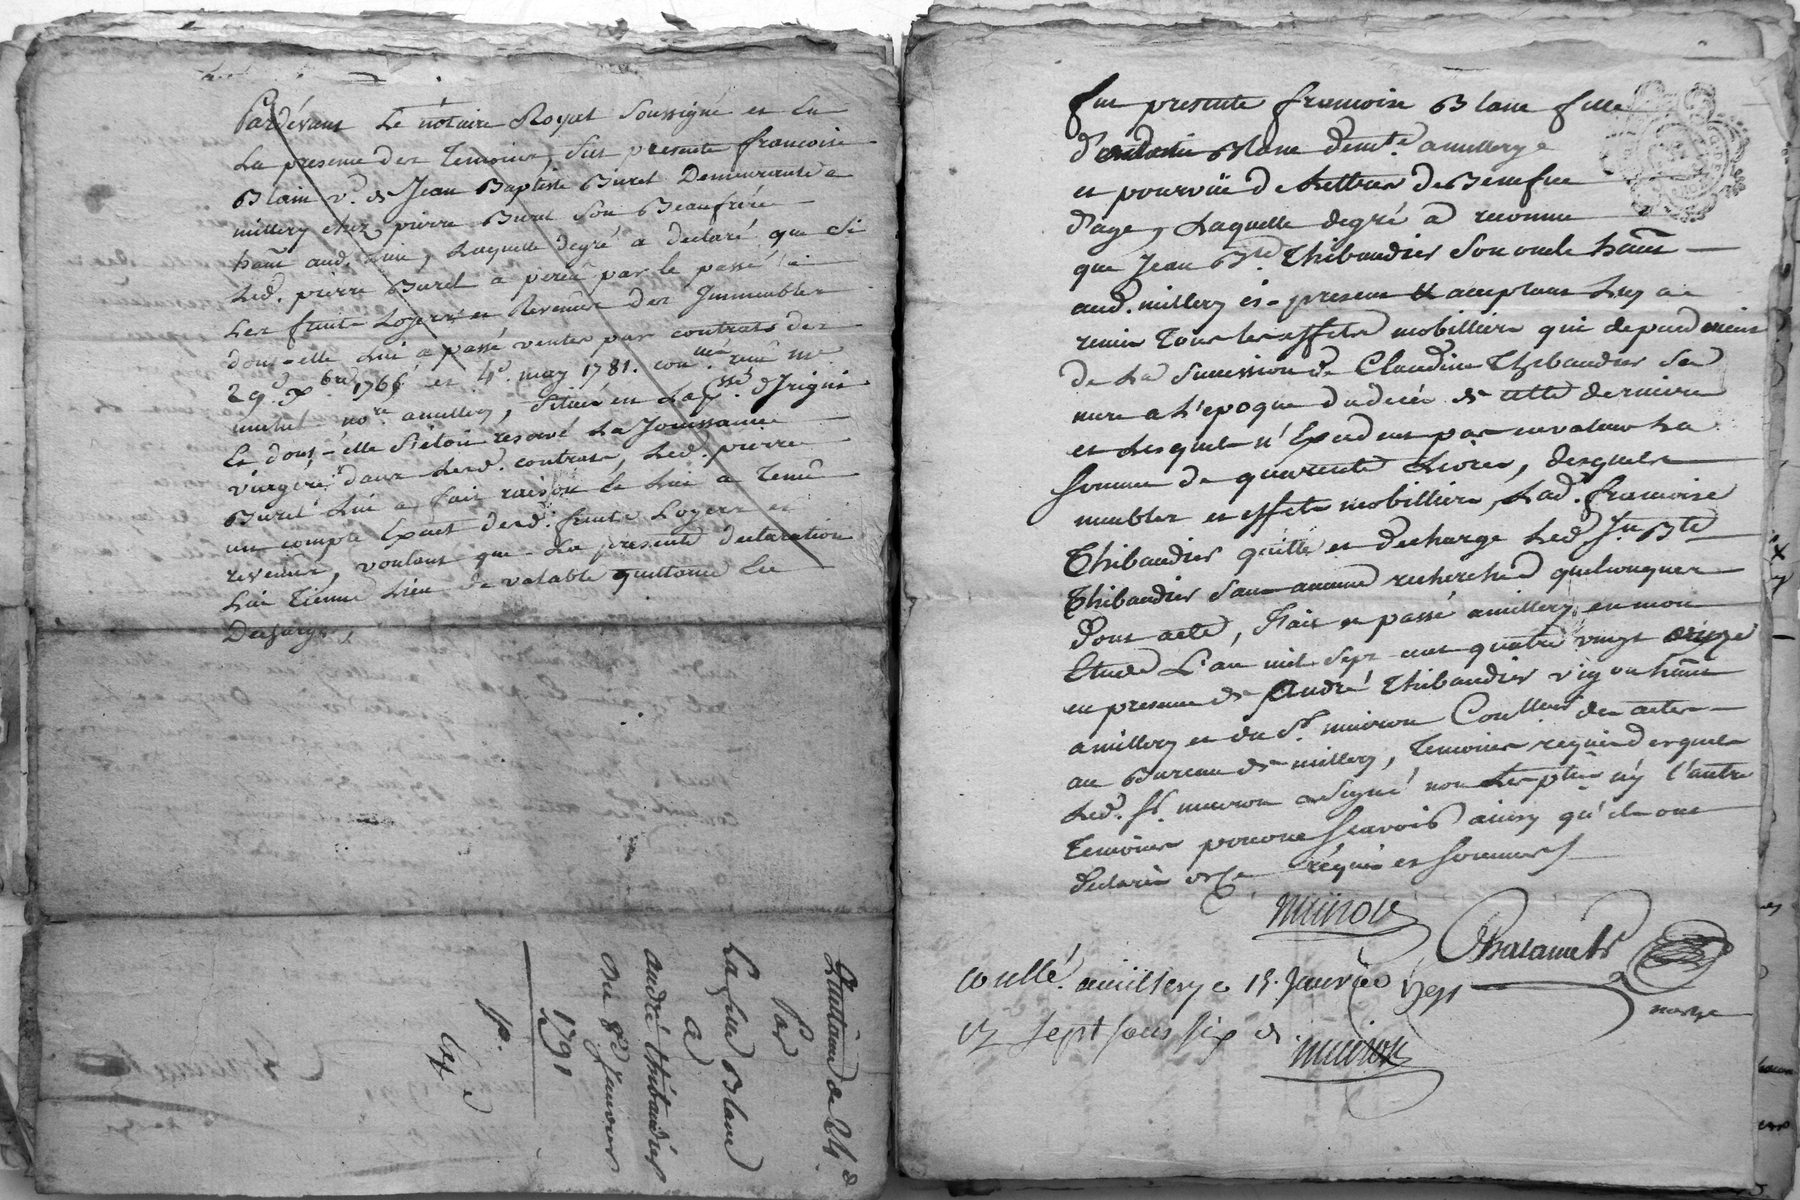 Pardévant Le notaire Royal Soussigné et En
La presence des Temoins, fut presente francoise
Blain v.e de Jean Baptiste Buret Demeurante a
millery chez pierre Buret Son Beaufrére
ham aud. Lieu, Laquelle degré a declaré que Si
Led. pierre Buret a percû par le passé
Les fruits Loyers et Revenus des Immeubles
dont elle Lui a passé ventes par contrats des
29.e Xbre 1765 et 4.e may 1781.
not.re amillery, Situés en La p.sse d'Irigni
Et dont elle S'etoit reservé La Jouissance
viagére dans Lesd. contrats, Led. pierre
Buret Lui a fait raison Et Lui a Tenû
un compte Exact desd. fruits Loyers et
revenus, voulant que La presente declaration
Lui Tienne Lieu de valable quittance Et
Decharge,
Quittance de 24.
Par
La fille Blanc
a
andré thibaudier
du 8 Janvier
1791
Exp.é
fut presente francoise Blanc fille
d' Blanc demt. amillery
et pourvüe de Lettres de Benefice
d'age, Laquelle degré a reconnu
que Jean B.te Thibaudier Son oncle ham
aud. millery ci-present & acceptant Luy a
remis Tous les effets mobilliers qui dependoient
de La Succession de Claudine Thibaudier Sa
mere a L'epoque du decés de cette derniere
et Lesquels n'Excedent pas en valeur La
Somme de quarante Livres, desquels
meubles et effets mobilliers, Lad. francoise
Thibaudier quitte et decharge Led. J.n B.te
Thibaudier Sans aucune recherche quelconques
Dont acte, Fait et passé amillery en mon
Etude L'an mil Sept cent quatre vingt onze
en presence de André Thibaudier vig.on ham
amillery et du S.r muiron Con.lleur des actes
au Bureau de millery, Temoins requis desquels
Led. S.r muiron a Signé non Les pties ny l'autre
Temoins pour ne Scavoir ainsy qu'ils ont
declarés de ce requis et Sommés
muiron
Chalamel
Conllé. amillery e 15. Janvier 1791
rz Sept Sous Six d.
muiron